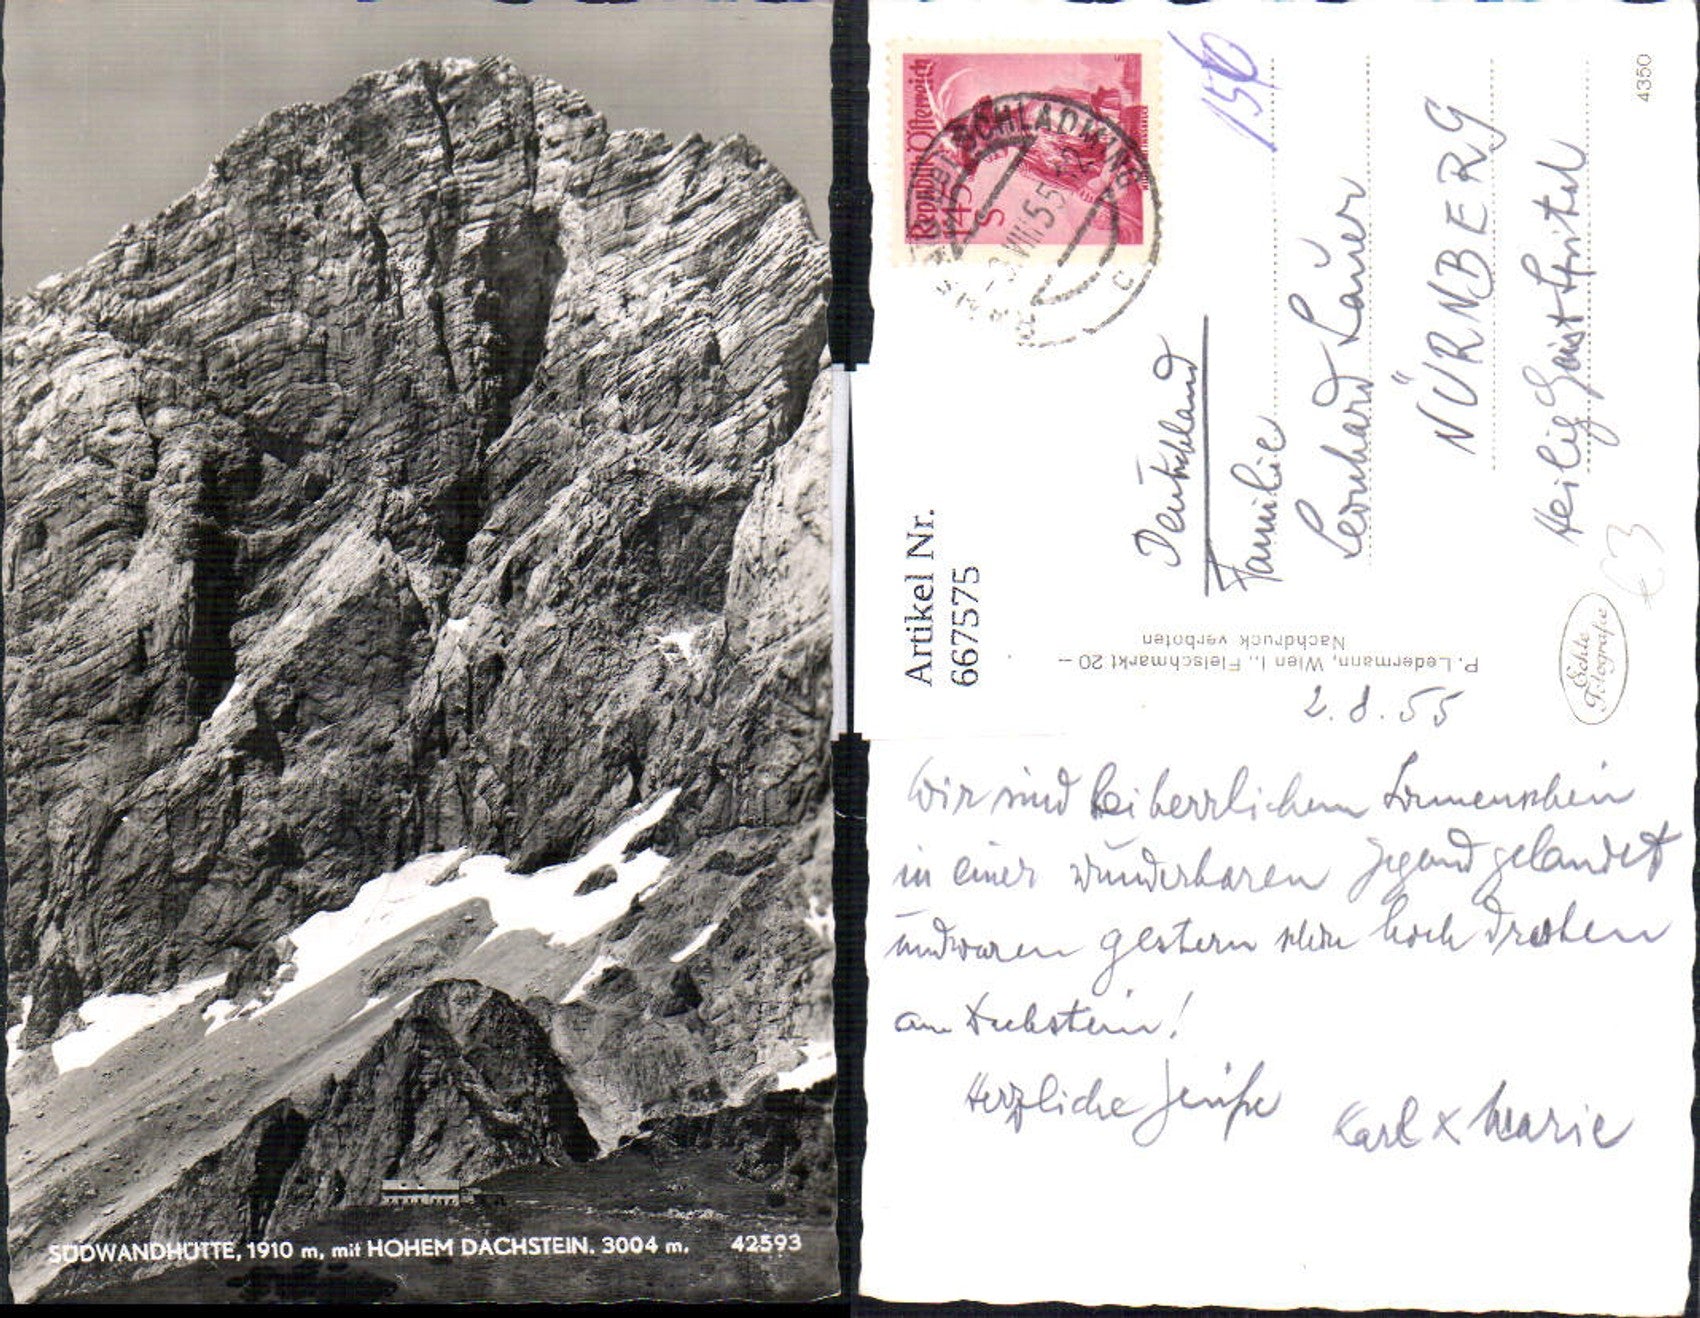 SÜDWANDHÜTTE, 1910 m, mit HOHEM DACHSTEIN. 3004 m. 42593
Republik Österreich
1.45
S
SCHLADMING
-3.VIII.55
C
150
4350
Deutschland
Familie
Leonhard Lauer
NÜRNBERG
Heilig Geist Spital
€3
Artikel Nr.
667575
P. Ledermann, Wien I., Fleischmarkt 20 –
Nachdruck verboten
Echte
Fotografie
2.8.55
Wir sind bei herrlichem Sonnenschein
in einer wunderbaren Gegend gelandet
und waren gestern schon hoch droben
am Dachstein!
Herzliche Grüße
Karl & Marie